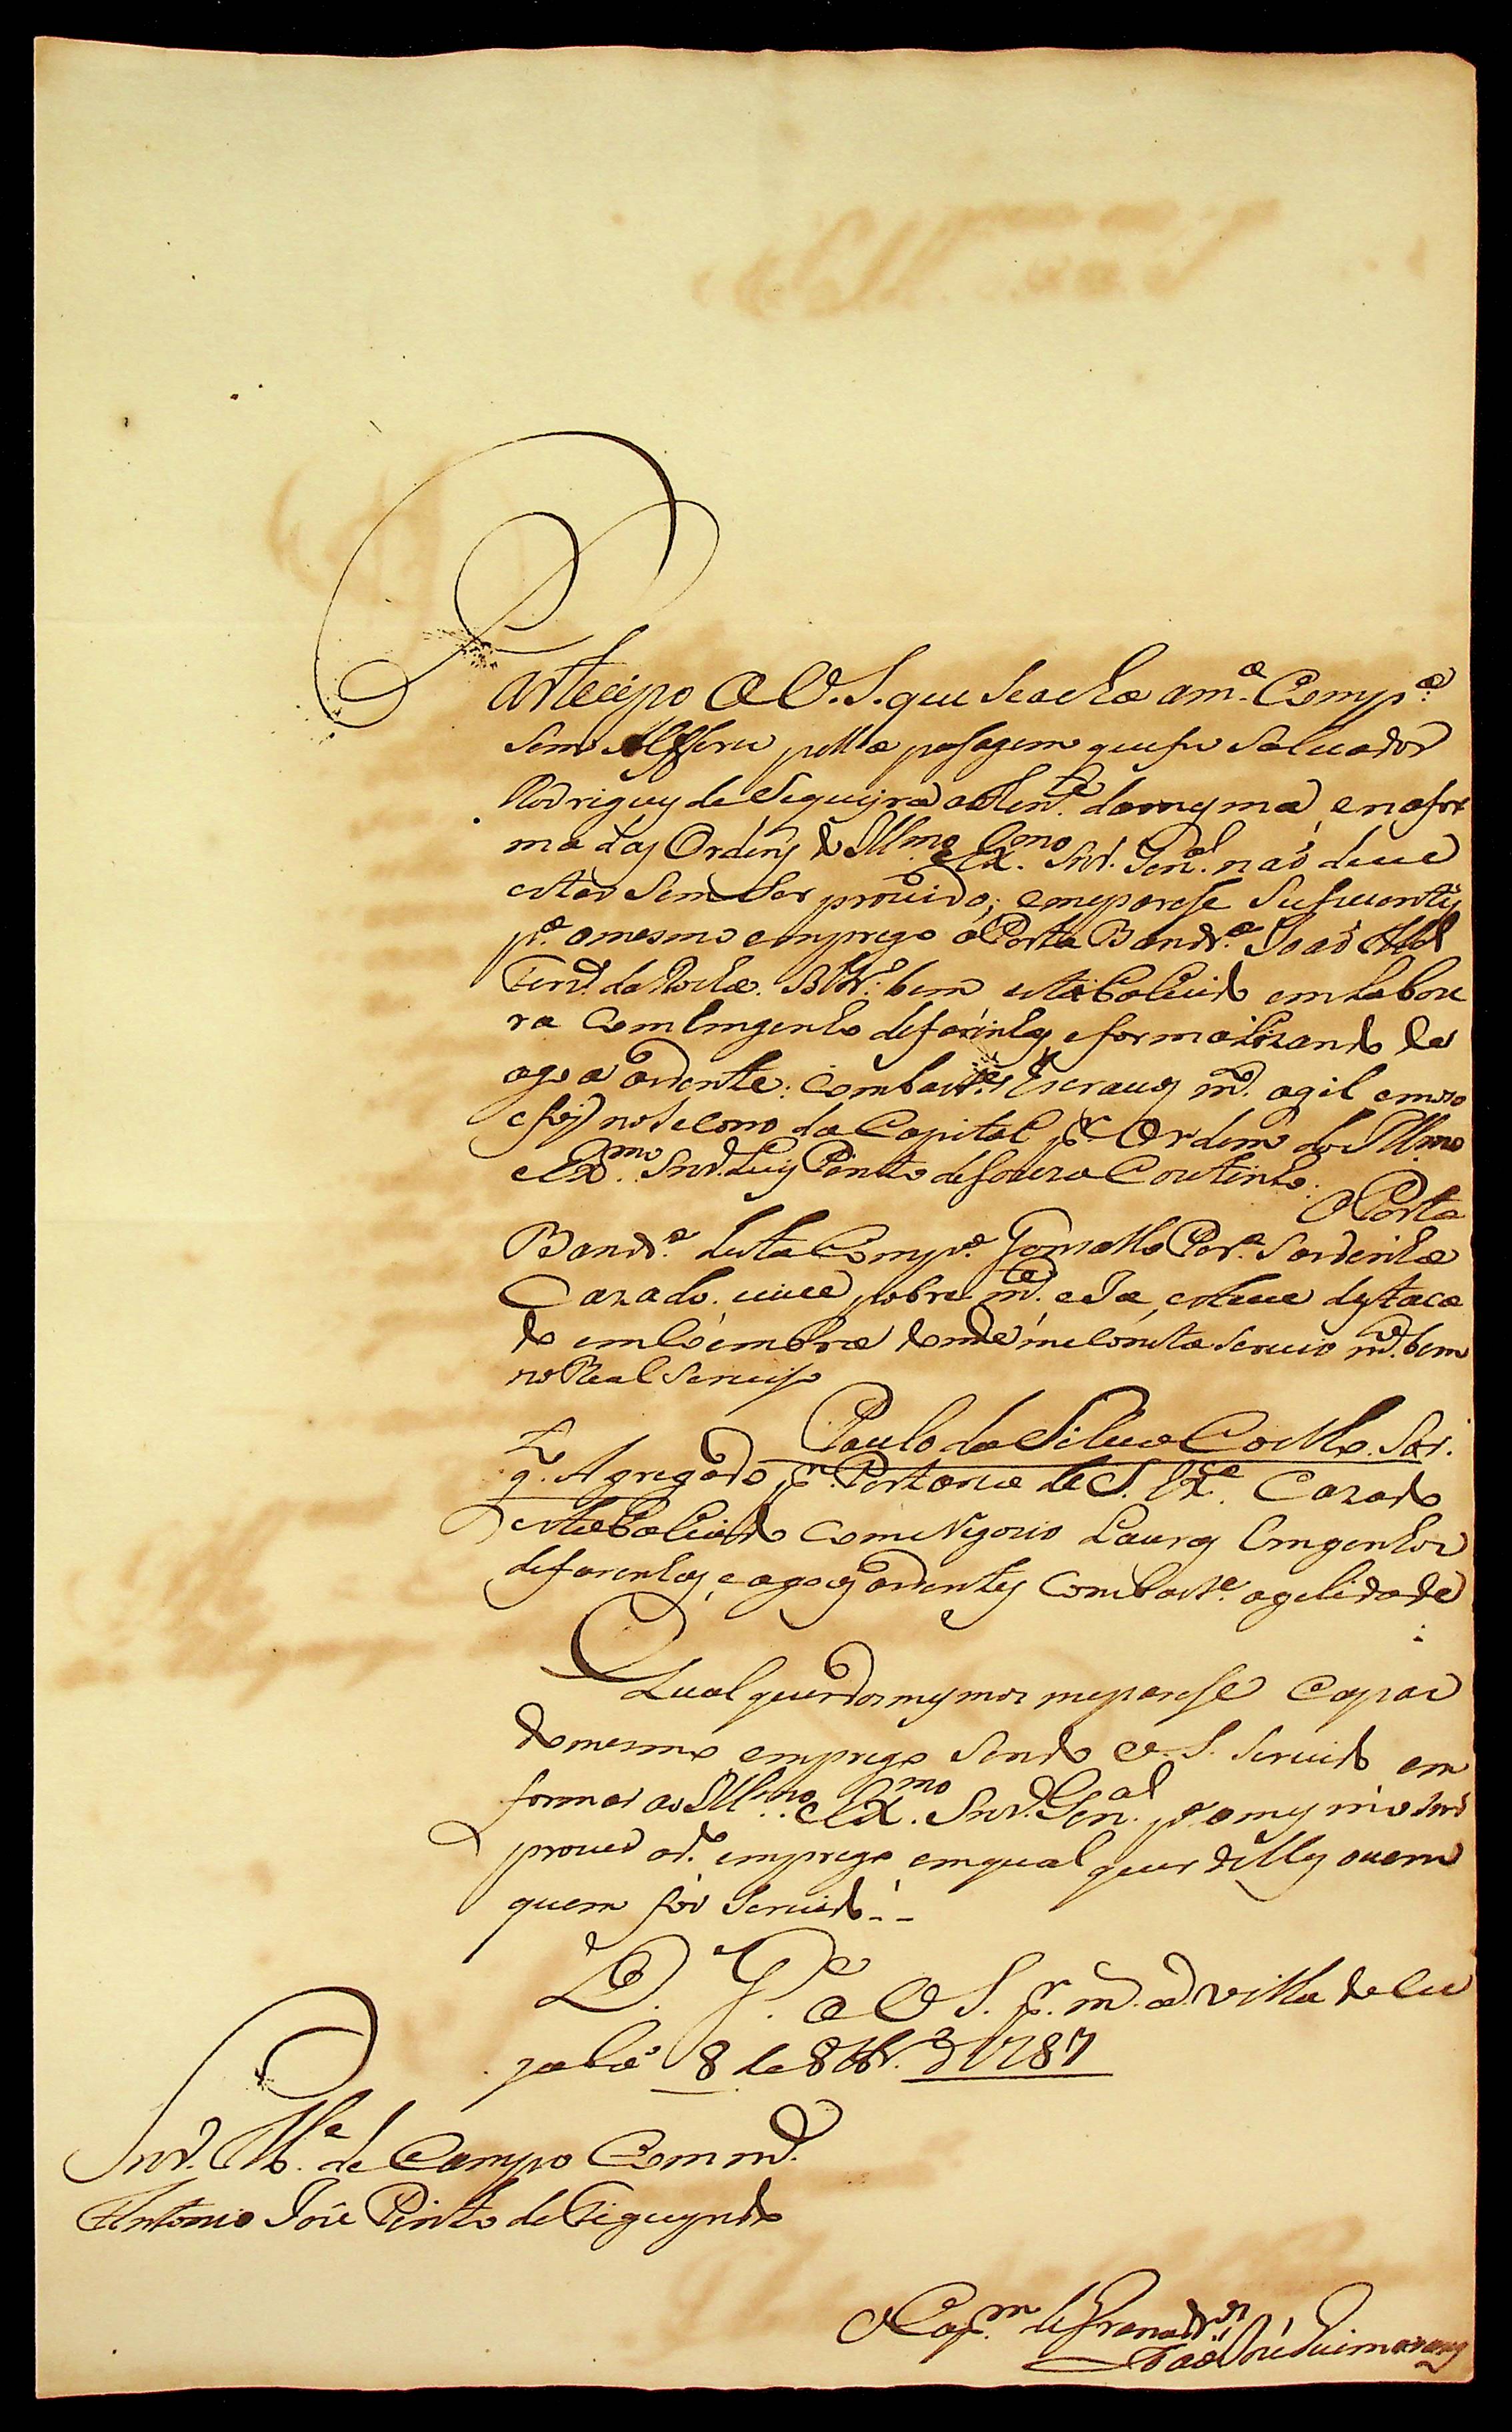 Partecipo a V. S. que se acha a m.ª Comp.ª
sem Alfferes pella pasagem que fes Salvador
Rodrigues de Siqueyra a Then.te da mesma, e na for
ma das Ordens do Illmo. e Exmo. Snr. Gen.al naõ deve
estar sem ser provido; e me parese
p.ª o mesmo emprego o Porta Band.ª Joaõ
Fern.des da Rocha. bem estabalecido em Lavou
ra com Emgenho de farinhas, e formalizando de
agoa ardente: com bast.es Escravos m.to agil
e foi no da Capital p.r Ordem do Illmo.
e Exmo. Snr. Luis Pinto de Souza Coutinho.
O Porta
Band.ª desta Comp.ª Gonsallo Per.ª Sardinha
Cazado, vive pobre m.te e Ja esteve destaca
do em Coimbra donde me Consta servio m.to bem
no Real Serviso
Paulo da Silva Coelho. Sar.
g.to Agregado p.r Portaria de S. Ex.ª Cazado
estabalecido com Negocio Lavras Emgenhos
de farinhas, e agoas ardentes com bast.e agelidade
Qual quer dos mesmos me parese Capas
do mesmo emprego sendo V. S. servido em
formar ao Illmo. e Exmo. Snr. Gen.al p.ª o mesmo Snr.
prover o d.º emprego em qual quer delles ou em
quem for servido.
D. G.e a V S. p.r m. a. Villa de Cu
yabá 8 de 8br.º de 1787
Snr. M.e de Campo Comm.de
Antonio Joze Pinto de Figueyredo
O Cap.m de Granad.ros
Joze Guimaraens